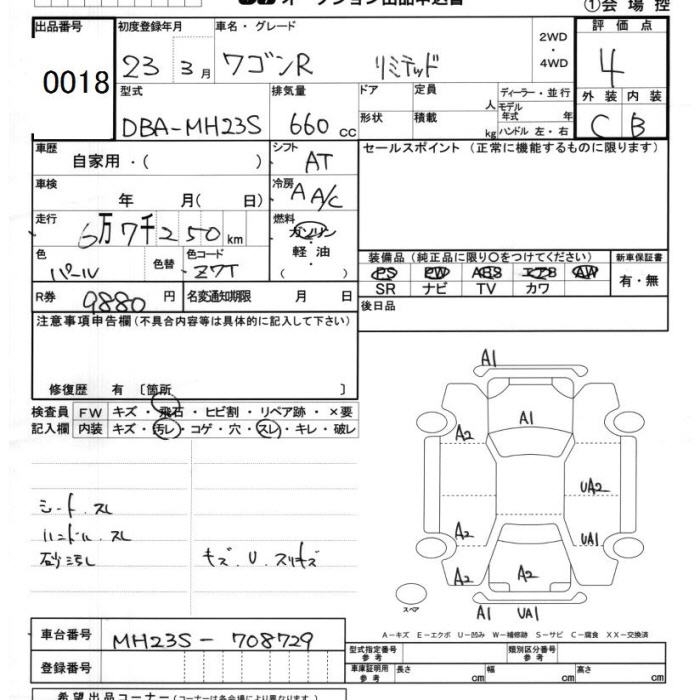 オークション出品申込書
①会場控
出品番号 初度登録年月 車名・グレード 2WD・4WD 評価点
0018 23 3月 ワゴンR リミテッド 4
型式 排気量 ドア 定員 人 ディーラー・並行 外装 内装
DBA-MH23S 660 cc 形状 積載 kg モデル年式 年 ハンドル 左・右 C B
車歴 自家用・( ) シフト AT セールスポイント(正常に機能するものに限ります)
車検 年 月(日) 冷房 A A/C
走行 6万7千250km 燃料 ガソリン・軽油・( )
色 パール 色替 色コード Z7T 装備品(純正品に限り○をつけてください) 新車保証書
PS PW ABS エアB AW 有・無
SR ナビ TV カワ
R券 9880円 名変通知期限 月 日 後日品
注意事項申告欄(不具合内容等は具体的に記入して下さい)
修復歴 有 〔箇所 〕
検査員 FW キズ・飛石・ヒビ割・リペア跡・×要
記入欄 内装 キズ・汚レ・コゲ・穴・スレ・キレ・破レ
シート.スレ
ハンドル.スレ
砂汚し
キズ.U.スリキズ
A1
A1
A2
A2
UA2
A2
UA1
A2
A2
スペア
A1 UA1
A-キズ E-エクボ U-凹み W-補修跡 S-サビ C-腐食 XX-交換済
車台番号 MH23S-708729
型式指定番号 参考 類別区分番号 参考
登録番号 車庫証明用 参考 長さ cm 幅 cm 高さ cm
希望出品コーナー(コーナーは各会場により異なります)